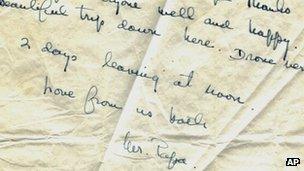 yone well and happy. Thanks
beautiful trip down here. Drove her
2 days leaving at noon.
love from us both
Mr. Papa.
AP